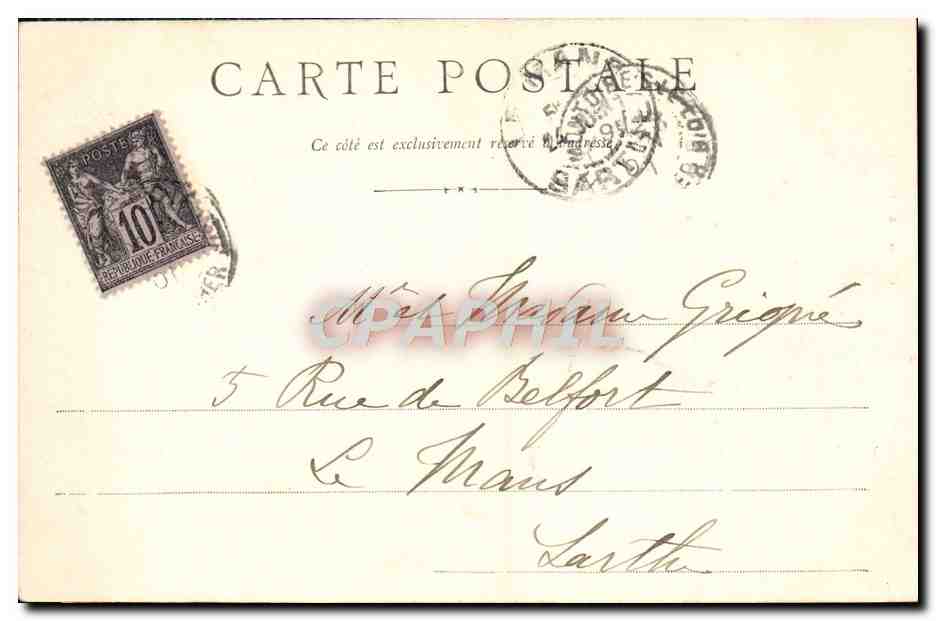 CARTE POSTALE
Ce côté est exclusivement réservé à l'adresse
POSTE
10
REPUBLIQUE FRANÇAISE
CPAPHIL
Mr et Madame Grigné
5 Rue de Belfort
Le Mans
Sarthe